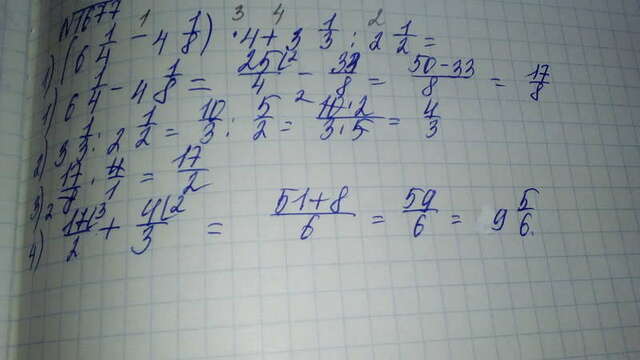 N677
1 3 4 2
1) (6 1/4 - 4 1/8) · 4 + 3 1/3 : 2 1/2 =
1) 6 1/4 - 4 1/8 = 25/4 - 33/8 = 50-33/8 = 17/8
2) 3 1/3 : 2 1/2 = 10/3 : 5/2 = 10·2/3·5 = 4/3
3) 17/8 · 4/1 = 17/2
4) 17/2 + 4/3 = 51+8/6 = 59/6 = 9 5/6.